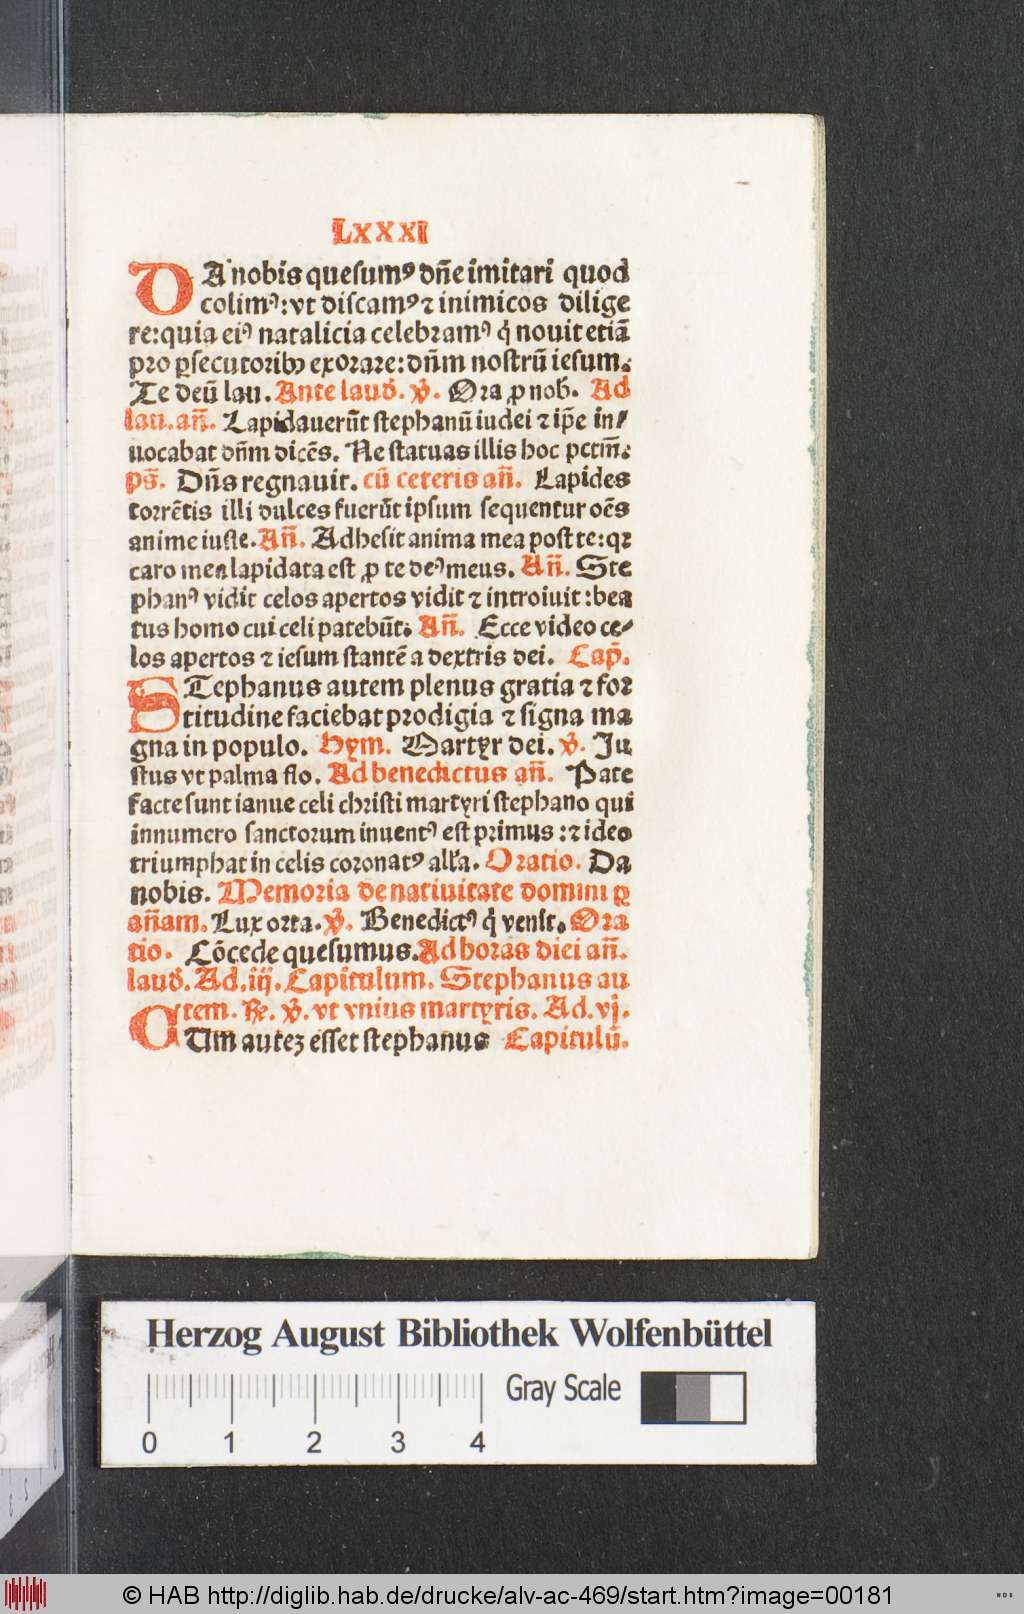 LXXXI
DA nobis quesumꝰ dn̄e imitari quod
colimꝰ: vt discamꝰ ⁊ inimicos dilige
re: quia eiꝰ natalicia celebramꝰ q̇ nouit etiā
pro ꝑsecutoribꝫ exorare: dn̄m nostrū iesum.
Te deū lau. Ante laud̛. v̛. Ora ꝓ nob̛. Ad
lau. an̄. Lapidauerūt stephanū iudei ⁊ ip̄e in/
uocabat dn̄m dicēs. Ne statuas illis hoc pctm̄:
ps̄. Dn̄s regnauit. cū ceteris an̄. Lapides
torrētis illi dulces fuerūt ipsum sequentur oēs
anime iuste. An̄. Adhesit anima mea post te: qꝛ
caro mea lapidata est ꝓ te deꝰ meus. An̄. Ste
phanꝰ vidit celos apertos vidit ⁊ introiuit: bea
tus homo cui celi patebūt. An̄. Ecce video ce/
los apertos ⁊ iesum stantē a dextris dei. Cap̄.
STephanus autem plenus gratia ⁊ for
titudine faciebat prodigia ⁊ signa ma
gna in populo. Hym. Martyr dei. v̛. Ju
stus vt palma flo. Ad benedictus an̄. Pate
facte sunt ianue celi christi martyri stephano qui
innumero sanctorum inuentꝰ est primus: ⁊ ideo
triumphat in celis coronatꝰ all̛a. Oratio. Da
nobis. Memoria de natiuitate domini ꝑ
an̄am. Lux orta. v̛. Benedictꝰ q̇ venit. Ora
tio. Cōcede quesumus. Ad horas diei an̄.
laud̛. Ad. iij. Capitulum. Stephanus au
tem. ꝶ. v̛. vt vnius martyris. Ad. vj.
CUm auteꝫ esset stephanus Capitulū.
Herzog August Bibliothek Wolfenbüttel
Gray Scale
0 1 2 3 4
© HAB http://diglib.hab.de/drucke/alv-ac-469/start.htm?image=00181